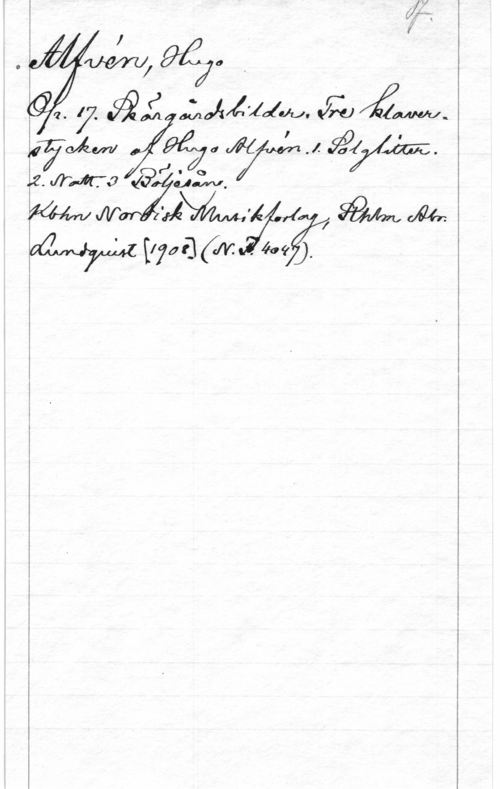 Alfvén, Hugo
Op. 17. Skärgårdsbilder. Tre klaver-
stycken af Hugo Alfvén. 1. Solglitter.
2. Natt. 3 Böljesång.
Kbhn Nordisk Musikforlag, Sthlm Abr.
Lundquist [1908] (N. 4047).